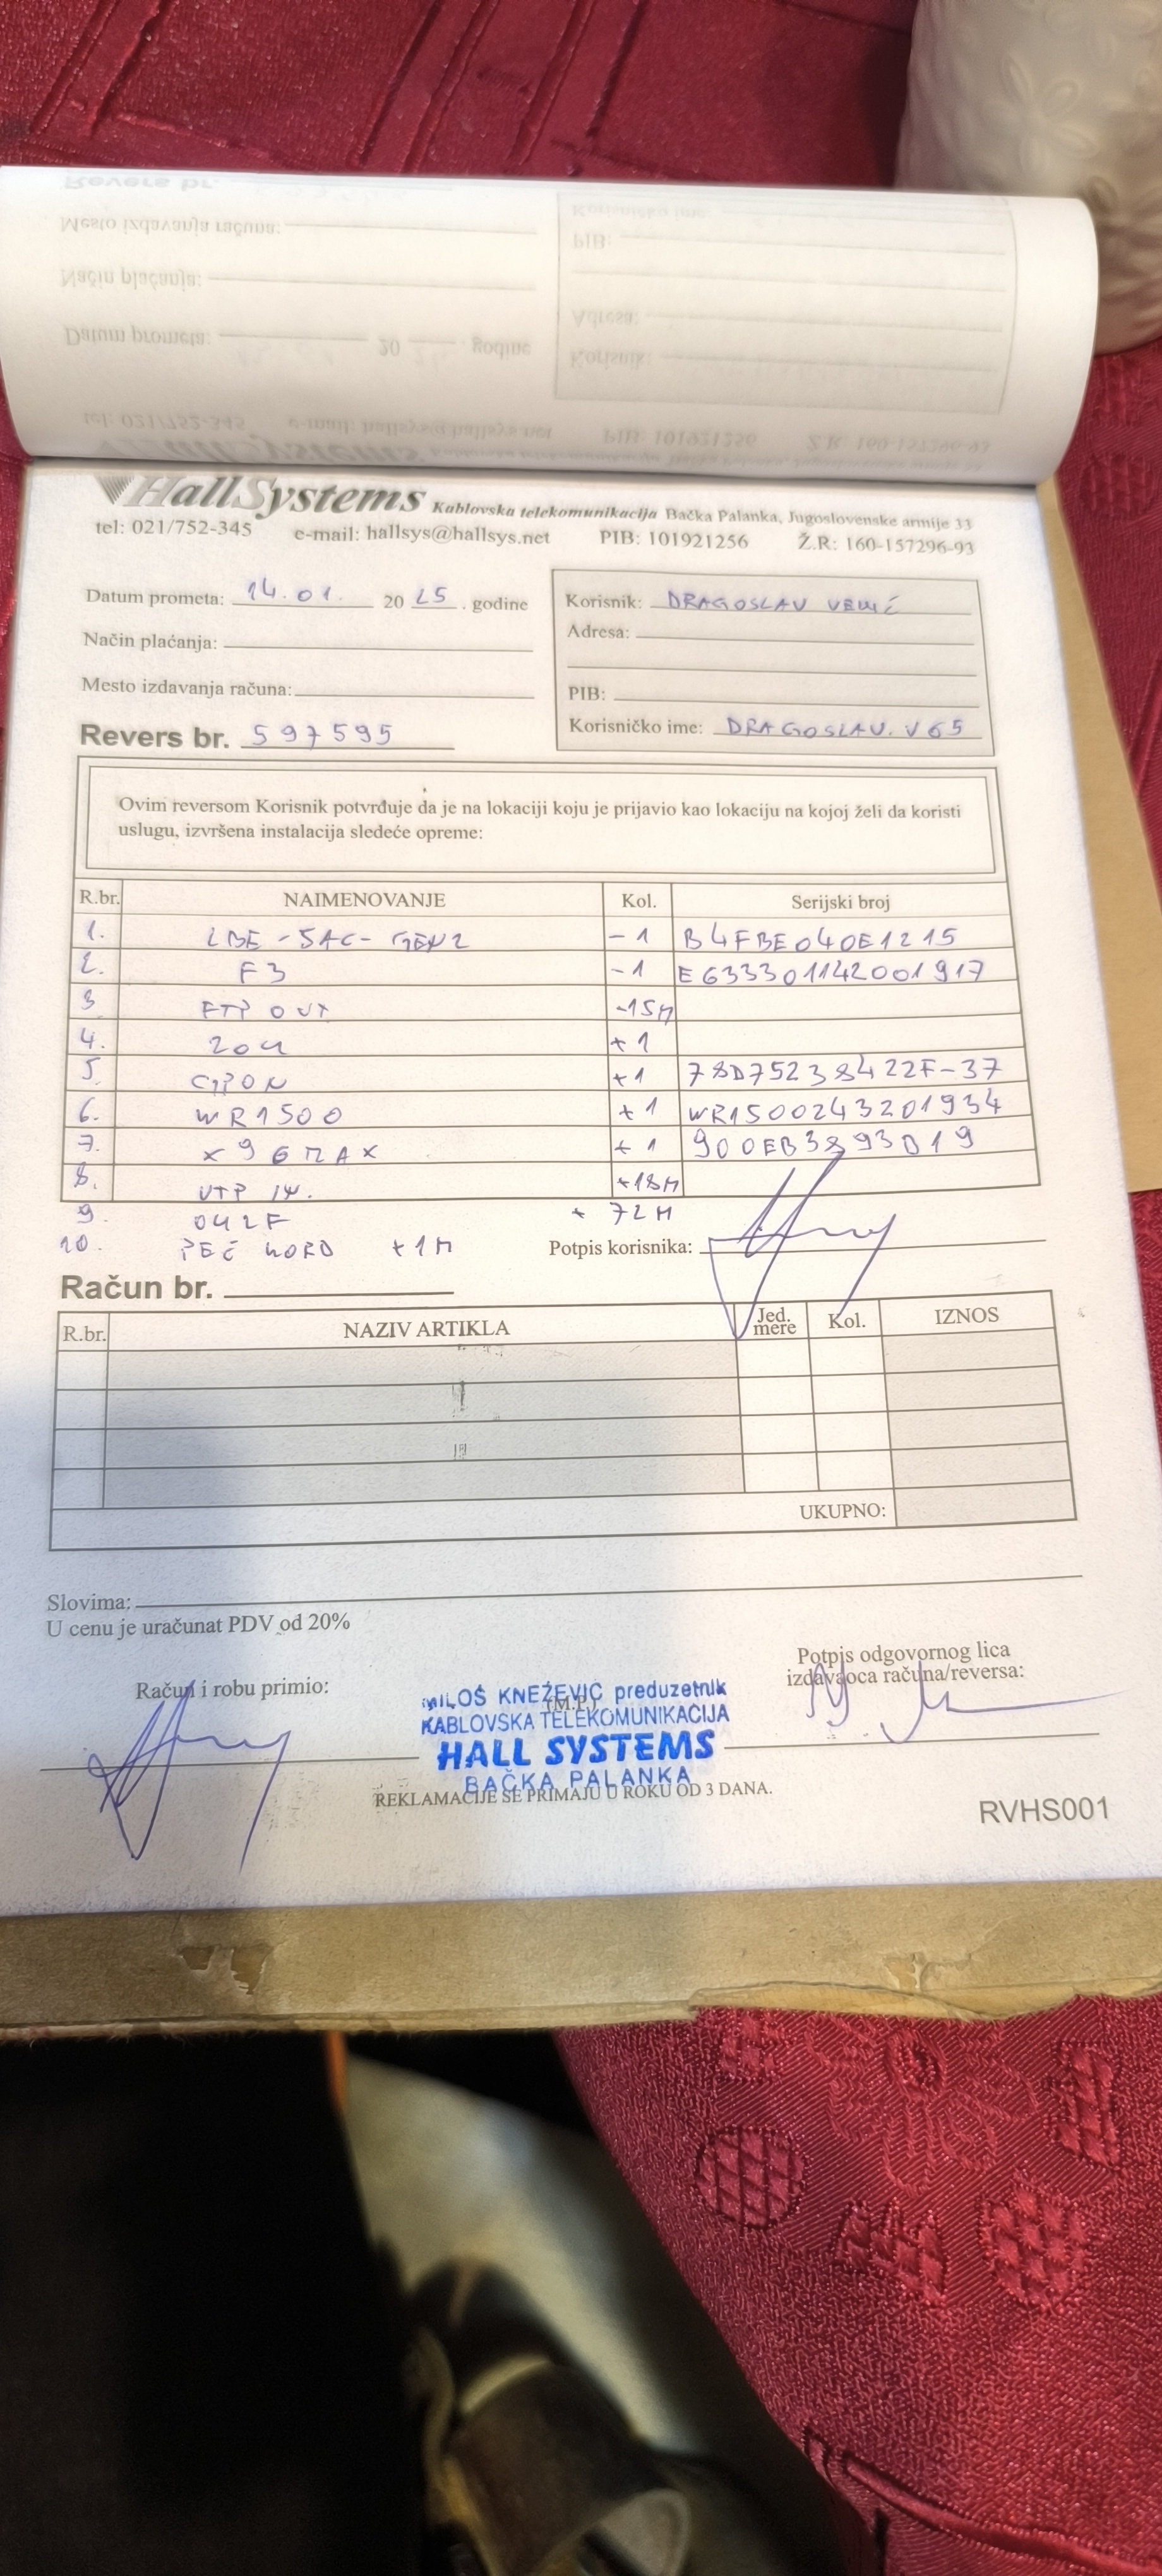 HallSystems Kablovska telekomunikacija Bačka Palanka, Jugoslovenske armije 33
tel: 021/752-345 e-mail: hallsys@hallsys.net PIB: 101921256 Ž.R: 160-157296-93
Datum prometa: 14.01. 2025. godine
Način plaćanja:
Mesto izdavanja računa:
Revers br. 597595
Korisnik: DRAGOSLAV
Adresa:
PIB:
Korisničko ime: DRAGOSLAV.V65
Ovim reversom Korisnik potvrđuje da je na lokaciji koju je prijavio kao lokaciju na kojoj želi da koristi
uslugu, izvršena instalacija sledeće opreme:
R.br. NAIMENOVANJE Kol. Serijski broj
1. LBE-5AC-GEN2 -1 B4FBE040E1215
2. F3 -1 E633301142001917
3 FTP OUT -15M
4. ZOU +1
5. GPON +1 78D75238422F-37
6. WR1500 +1 WR1500243201934
7. X96MAX +1 900EB3893D19
8. UTP IN. +18M
9. 042F + 72M
10. +1M
Potpis korisnika:
Račun br.
R.br. NAZIV ARTIKLA Jed. mere Kol. IZNOS
UKUPNO:
Slovima:
U cenu je uračunat PDV od 20%
Račun i robu primio:
(M.P.)
Potpis odgovornog lica
izdavaoca računa/reversa:
MILOŠ KNEŽEVIĆ preduzetnik
KABLOVSKA TELEKOMUNIKACIJA
HALL SYSTEMS
BAČKA PALANKA
REKLAMACIJE SE PRIMAJU U ROKU OD 3 DANA.
RVHS001